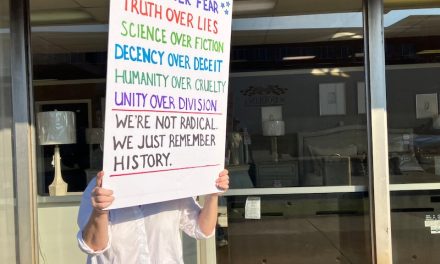 OVER FEAR
TRUTH OVER LIES
SCIENCE OVER FICTION
DECENCY OVER DECEIT
HUMANITY OVER CRUELTY
UNITY OVER DIVISION
WE'RE NOT RADICAL.
WE JUST REMEMBER
HISTORY.